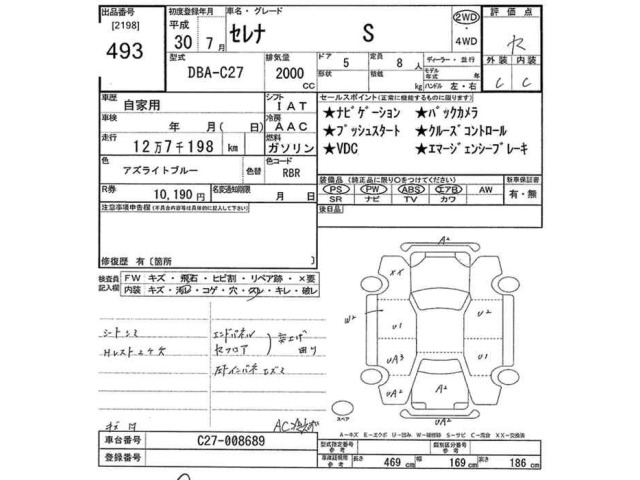 出品番号 初度登録年月 車名・グレード 評価点
[2198] 平成 セレナ S 2WD・4WD
493 30年 7月
型式 排気量 ドア 定員 ディーラー・並行 外装 内装
DBA-C27 2000 CC 5 8人 モデル年式 年 C C
形状 積載 kg ハンドル 左・右
車歴 シフト セールスポイント(正常に機能するものに限ります)
自家用 IAT ★ナビゲーション ★バックカメラ
車検 冷房 ★プッシュスタート ★クルーズコントロール
年 月(日) AAC ★VDC ★エマージェンシーブレーキ
走行 燃料
12万7千198km ガソリン
色 色替 色コード 装備品(純正品に限り○をつけてください) 新車保証書
アズライトブルー RBR PS PW ABS エアB AW 有・無
R券 名変通知期限 SR ナビ TV カワ
10,190円 月 日 後日品
注意事項申告欄(不具合内容等は具体的に記入して下さい)
修復歴 有〔箇所 〕
検査員記入欄 FW キズ・飛石・ヒビ割・リペア跡・×要
内装 キズ・汚レ・コゲ・穴・ズレ・キレ・破レ
A2
XX
W2 U1 U2
UA3 U1
UA2 A2 UA2
UA2
スペア
シートシミ エンドパネル
Hレスト
セフロア
A-キズ E-エクボ U-凹み W-補修跡 S-サビ C-腐食 XX-交換済
車台番号 C27-008689 型式指定番号 参考 類別区分番号 参考
登録番号 車庫証明用参考 長さ 469cm 幅 169cm 高さ 186cm